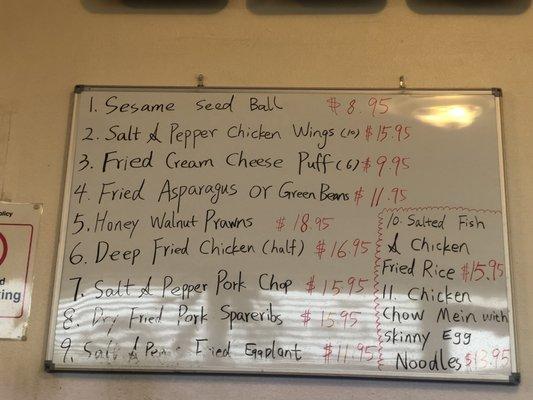 1. Sesame seed Ball $8.95
2. Salt & Pepper Chicken Wings (10) $15.95
3. Fried Cream Cheese Puff (6) $9.95
4. Fried Asparagus or Green Beans $11.95
5. Honey Walnut Prawns $18.95
6. Deep Fried Chicken (half) $16.95
7. Salt & Pepper Pork Chop $15.95
8. Dry Fried Pork Spareribs $15.95
9. Salt & Fried Eggplant $11.95
10. Salted Fish
& Chicken
Fried Rice $15.95
11. Chicken
Chow Mein with
skinny Egg
Noodles $13.95
olicy
ring